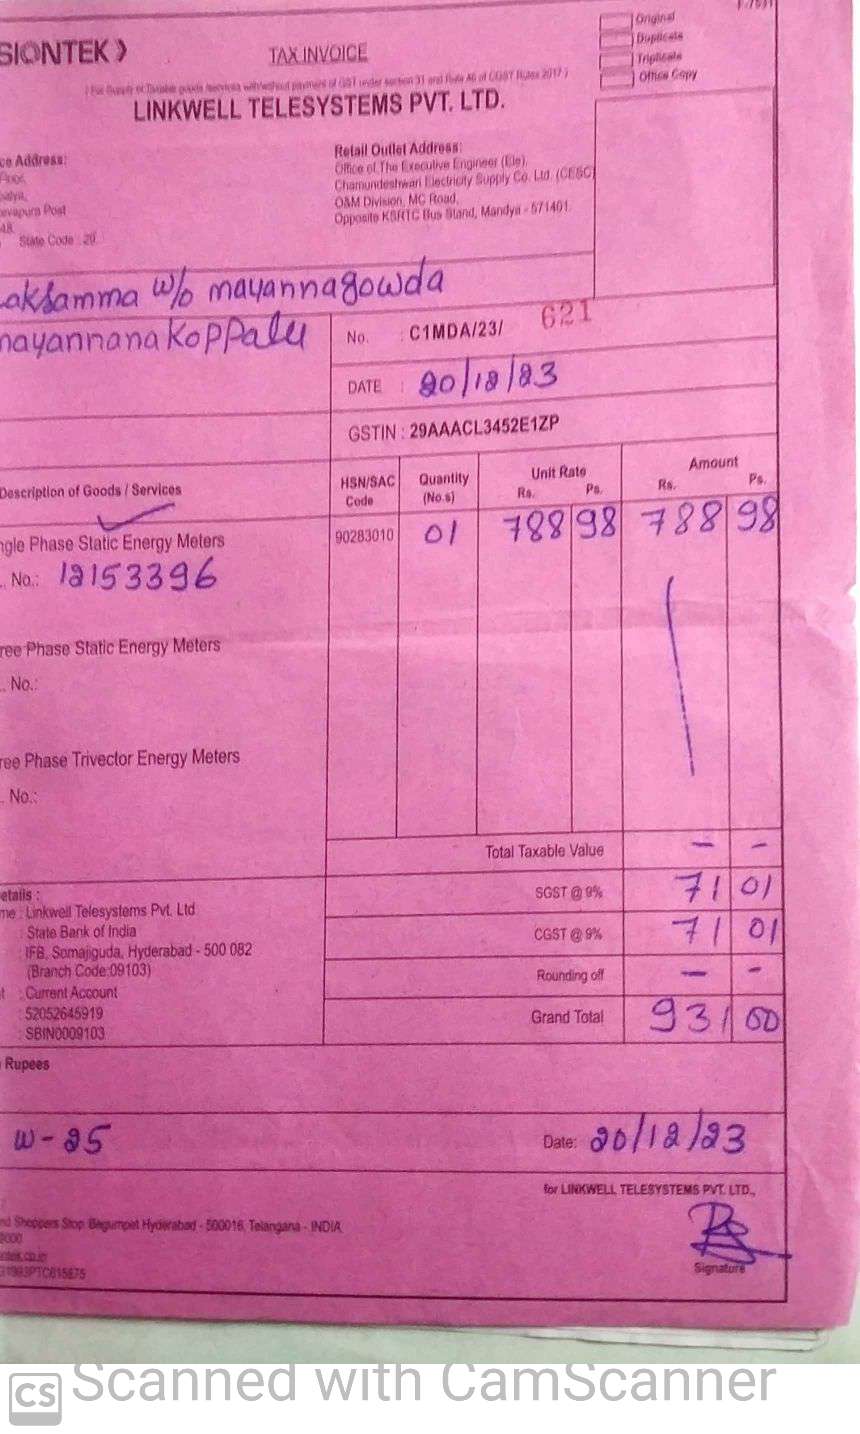 SIONTEK
TAX INVOICE
Original
Duplicate
Triplicate
Office Copy
( For Supply of Taxable goods /services with/without payment of GST under section 31 and Rule 46 of CGST Rules 2017 )
LINKWELL TELESYSTEMS PVT. LTD.
ce Address:
Floor,
evapura Post
48,
State Code : 29
Retail Outlet Address:
Office of The Executive Engineer (Ele),
Chamundeshwari Electricity Supply Co. Ltd. (CESC)
O&M Division, MC Road,
Opposite KSRTC Bus Stand, Mandya - 571401.
aksamma w/o mayannagowda
mayannana Koppalu
No. : C1MDA/23/ 621
DATE : 20/12/23
GSTIN : 29AAACL3452E1ZP
Description of Goods / Services
HSN/SAC Code
Quantity (No.s)
Unit Rate Rs. Ps.
Amount Rs. Ps.
ngle Phase Static Energy Meters 90283010 01 788 98 788 98
. No.: 12153396
ree Phase Static Energy Meters
. No.:
ree Phase Trivector Energy Meters
. No.:
Total Taxable Value - -
SGST @ 9% 71 01
CGST @ 9% 71 01
Rounding off - -
Grand Total 931 00
etails :
me : Linkwell Telesystems Pvt. Ltd
: State Bank of India
: IFB, Somajiguda, Hyderabad - 500 082
(Branch Code:09103)
t : Current Account
: 52052645919
: SBIN0009103
Rupees
W-25
Date: 20/12/23
for LINKWELL TELESYSTEMS PVT. LTD.,
nd Shoppers Stop, Begumpet Hyderabad - 500016, Telangana - INDIA
Signature
CS Scanned with CamScanner